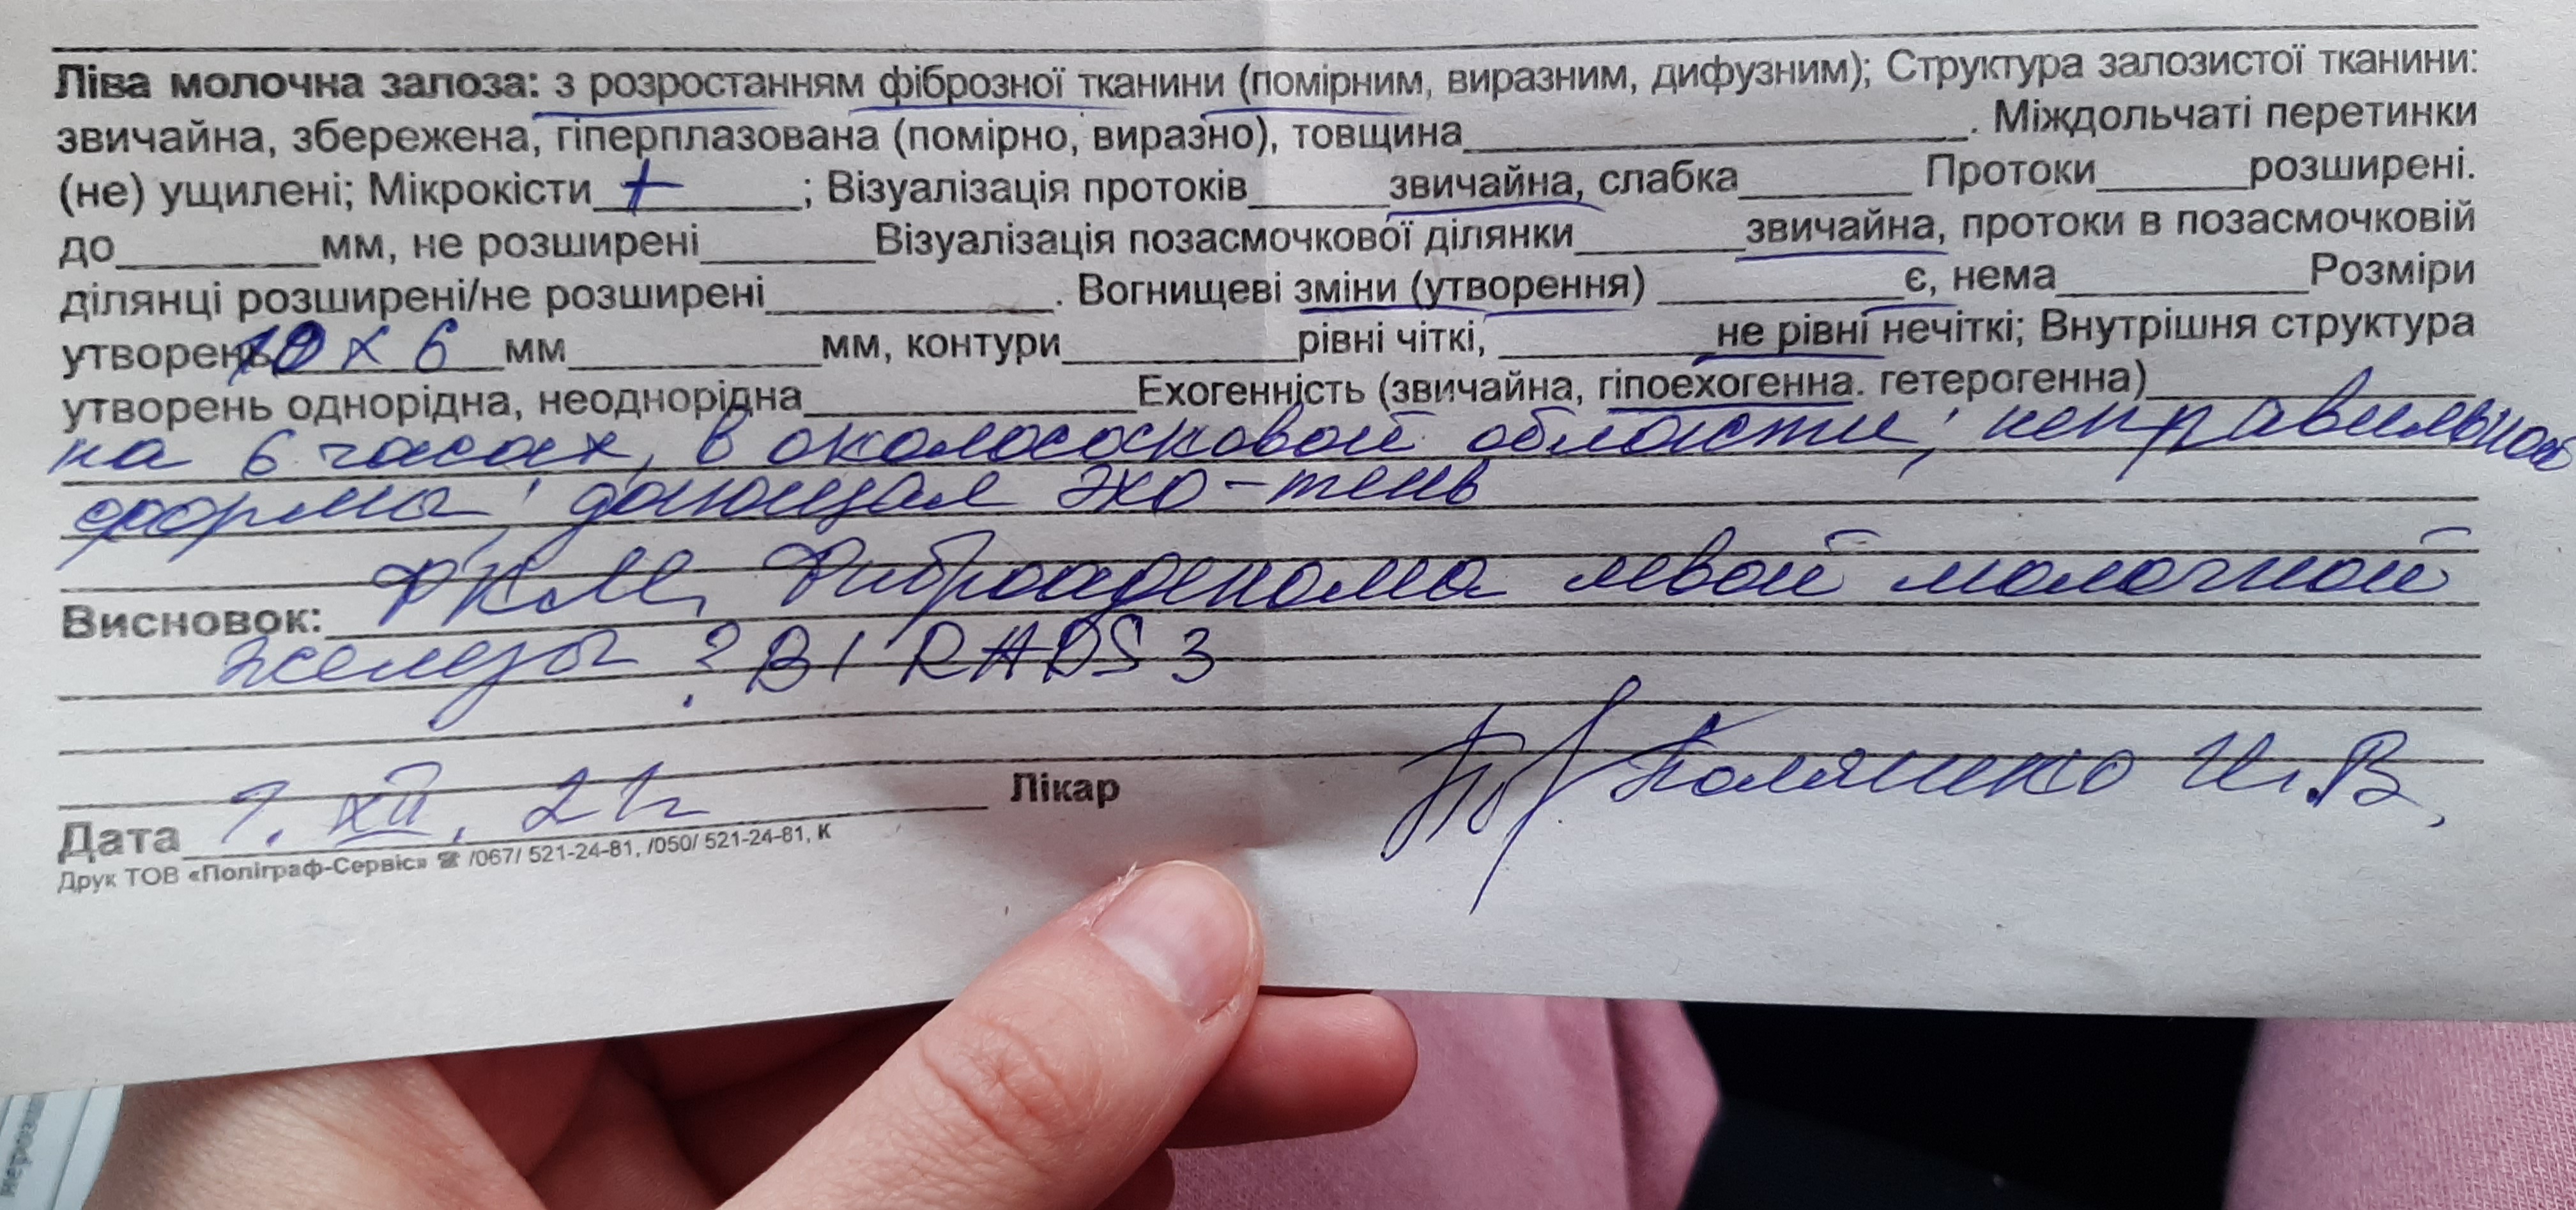 Ліва молочна залоза: з розростанням фіброзної тканини (помірним, виразним, дифузним); Структура залозистої тканини:
звичайна, збережена, гіперплазована (помірно, виразно), товщина____________. Міждольчаті перетинки
(не) ущилені; Мікрокісти + ; Візуалізація протоків______звичайна, слабка_______ Протоки______розширені.
до________мм, не розширені_______Візуалізація позасмочкової ділянки_______звичайна, протоки в позасмочковій
ділянці розширені/не розширені____________. Вогнищеві зміни (утворення) __________є, нема__________Розміри
утворень 10 х 6 мм__________мм, контури_________рівні чіткі, ________не рівні нечіткі; Внутрішня структура
утворень однорідна, неоднорідна_____________Ехогенність (звичайна, гіпоехогенна. гетерогенна)_____________
на 6 часах, в околососковой области; неправильной
формы, дающая эхо-тень
Висновок: ФКМ, Фиброаденома левой молочной
железы ? BI RADS 3
Дата 1. XII. 21г Лікар И.В.
Друк ТОВ «Поліграф-Сервіс» ☎ /067/ 521-24-81, /050/ 521-24-81, К